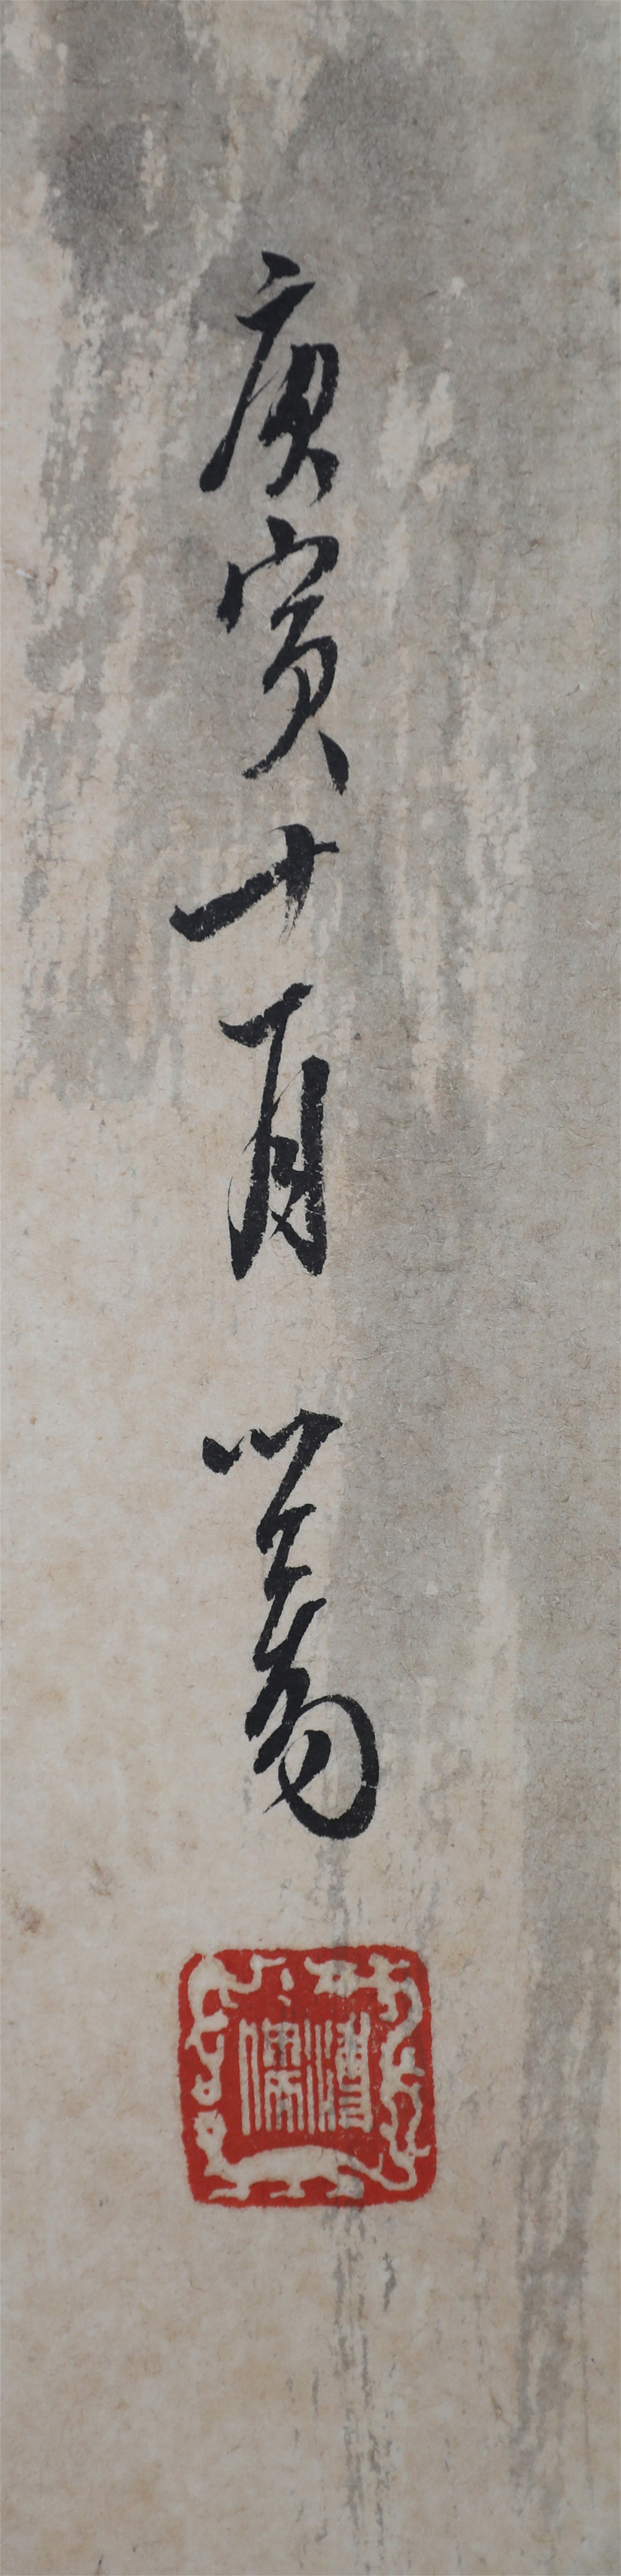 庚寅十一月 心畬
溥儒